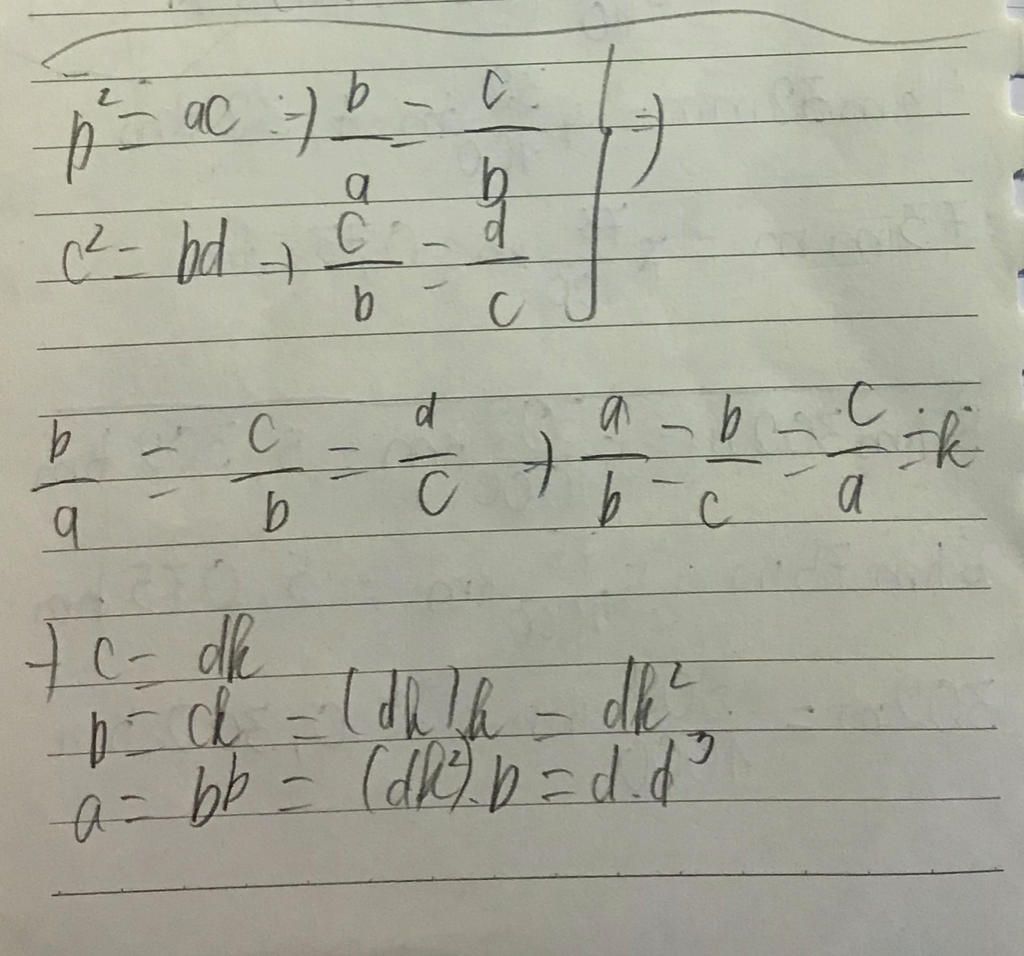 b² = ac ⇒ b/a = c/b } ⇒
c² = bd → c/b = d/c
b/a = c/b = d/c → a/b = b/c = c/a = k
→ c = dk
b = ck = (dk).k = dk²
a = bb = (dk²).b = d.d³